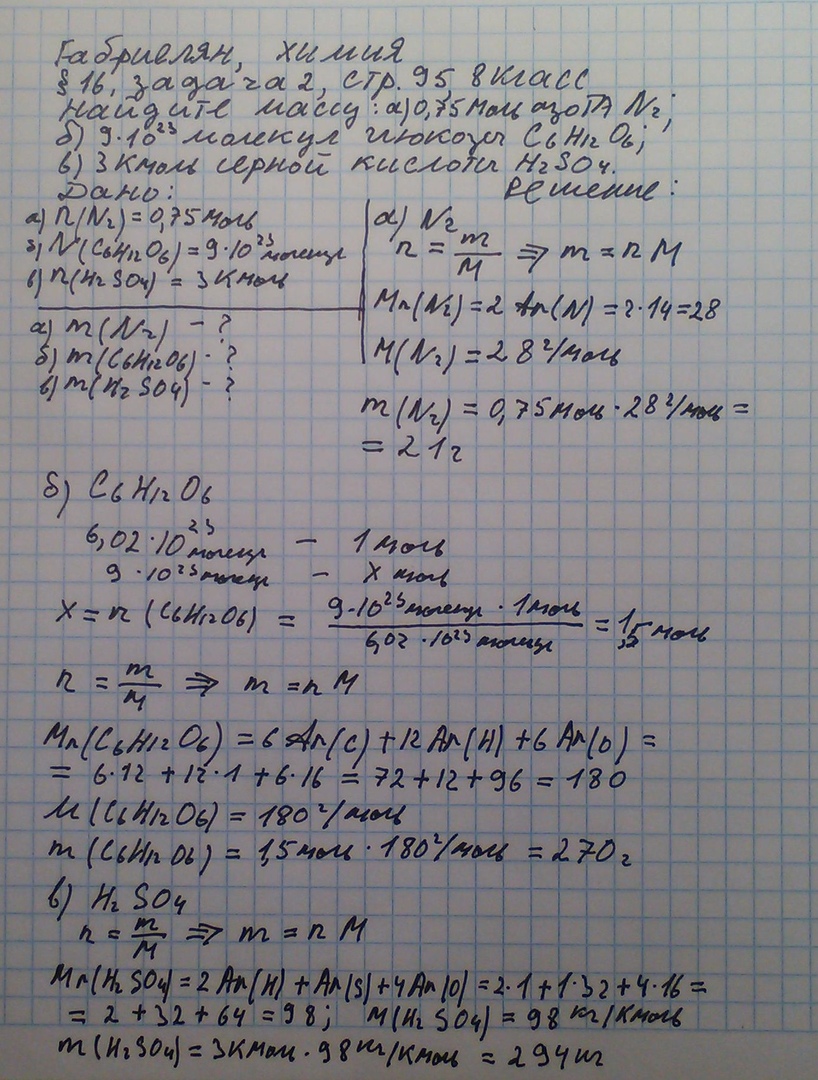 Габриелян, химия
§ 16, задача 2, стр. 95, 8 класс
Найдите массу: а) 0,75 моль азота N₂;
б) 9·10²³ молекул глюкозы C₆H₁₂O₆;
в) 3 Кмоль серной кислоты H₂SO₄.
Дано:
а) n(N₂) = 0,75 моль
б) N(C₆H₁₂O₆) = 9·10²³ молекул
в) n(H₂SO₄) = 3 Кмоль
а) m(N₂) - ?
б) m(C₆H₁₂O₆) - ?
в) m(H₂SO₄) - ?
Решение:
а) N₂
n = m/M ⇒ m = n M
Mr(N₂) = 2 Ar(N) = 2·14 = 28
M(N₂) = 28 г/моль
m(N₂) = 0,75 моль · 28 г/моль =
= 21 г
б) C₆H₁₂O₆
6,02·10²³ молекул – 1 моль
9·10²³ молекул – X моль
X = n(C₆H₁₂O₆) = 9·10²³ молекул · 1 моль / 6,02·10²³ молекул = 1,5 моль
n = m/M ⇒ m = n M
Mr(C₆H₁₂O₆) = 6 Ar(C) + 12 Ar(H) + 6 Ar(O) =
= 6·12 + 12·1 + 6·16 = 72 + 12 + 96 = 180
M(C₆H₁₂O₆) = 180 г/моль
m(C₆H₁₂O₆) = 1,5 моль · 180 г/моль = 270 г
в) H₂SO₄
n = m/M ⇒ m = n M
Mr(H₂SO₄) = 2 Ar(H) + Ar(S) + 4 Ar(O) = 2·1 + 1·32 + 4·16 =
= 2 + 32 + 64 = 98; M(H₂SO₄) = 98 кг/Кмоль
m(H₂SO₄) = 3 Кмоль · 98 кг/Кмоль = 294 кг